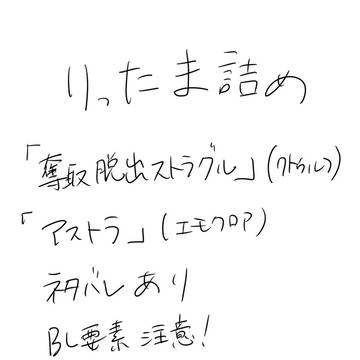 りったま詰め
「奪取脱出ストラグル」(クトゥルフ)
「アストラ」(エモクロア)
ネタバレあり
BL要素注意!